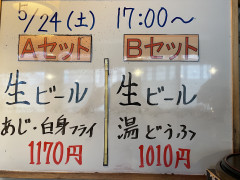 5/24(土) 17:00～
Aセット
生ビール
あじ・白身フライ
1170円
Bセット
生ビール
湯どうふ
1010円